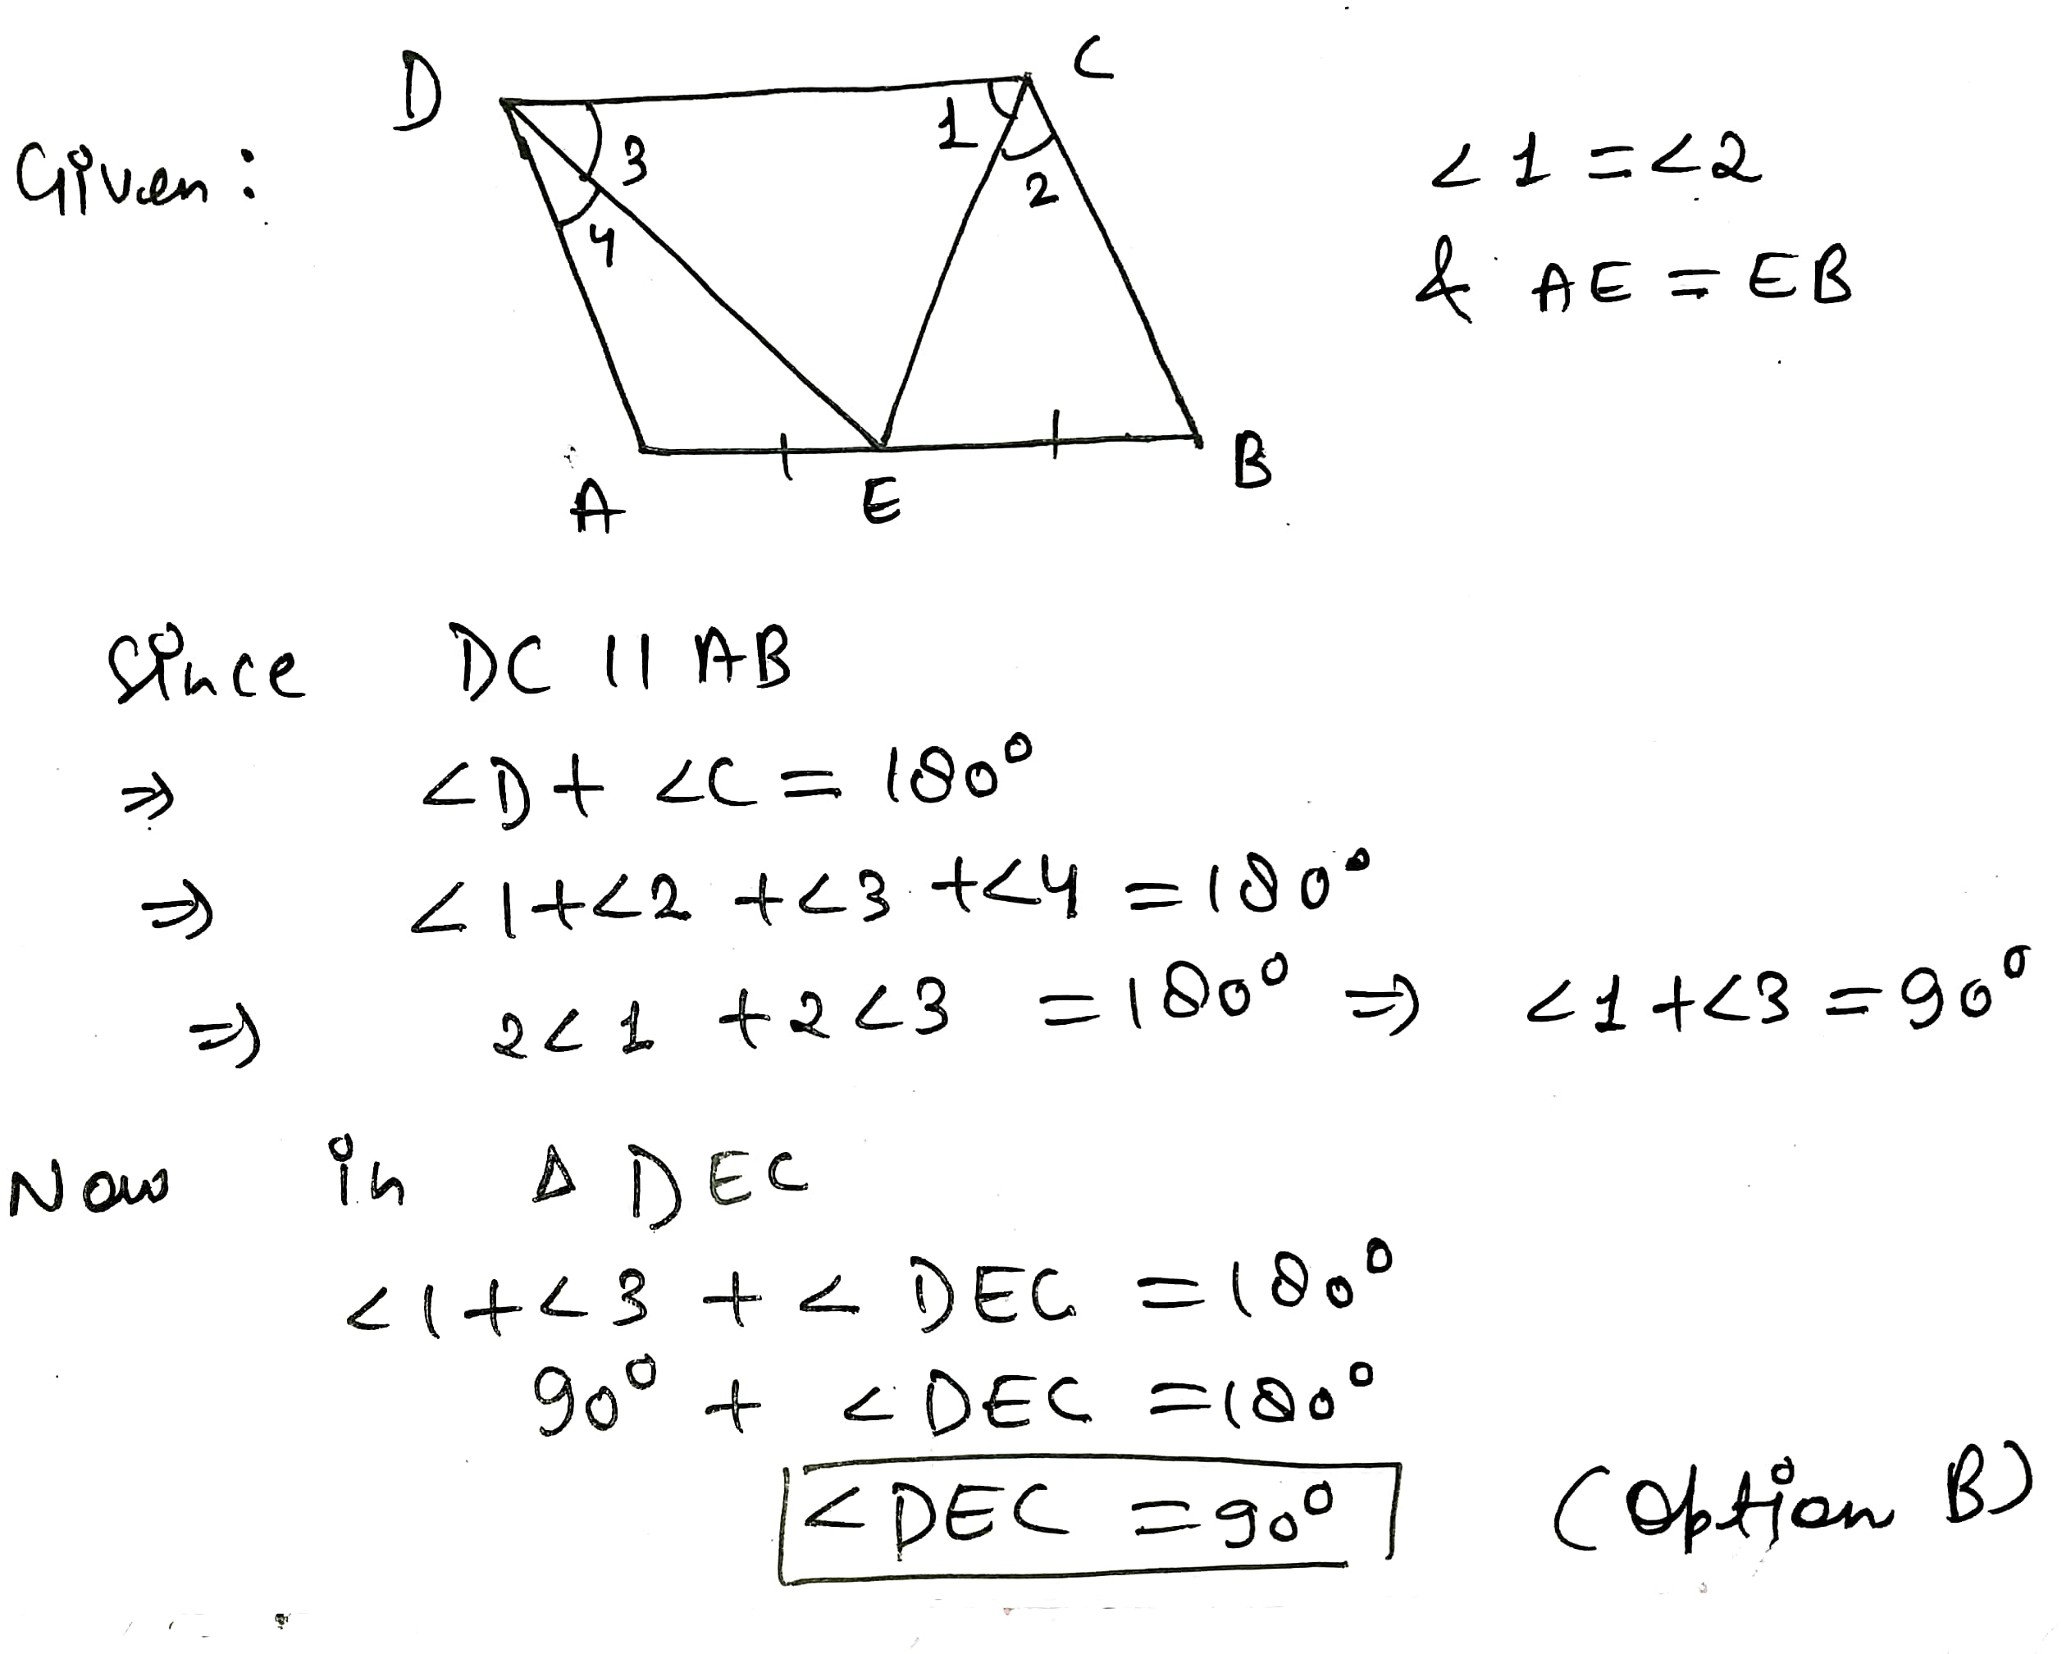 D C
Given : 3 1 2 4 <1 = <2
& AE = EB
A E B
Since DC || AB
⇒ <D + <C = 180°
⇒ <1+<2 +<3 +<4 = 180°
⇒ 2<1 +2<3 = 180° ⇒ <1 +<3 = 90°
Now in Δ DEC
<1+<3 + < DEC = 180°
90° + <DEC = 180°
<DEC = 90° (Option B)